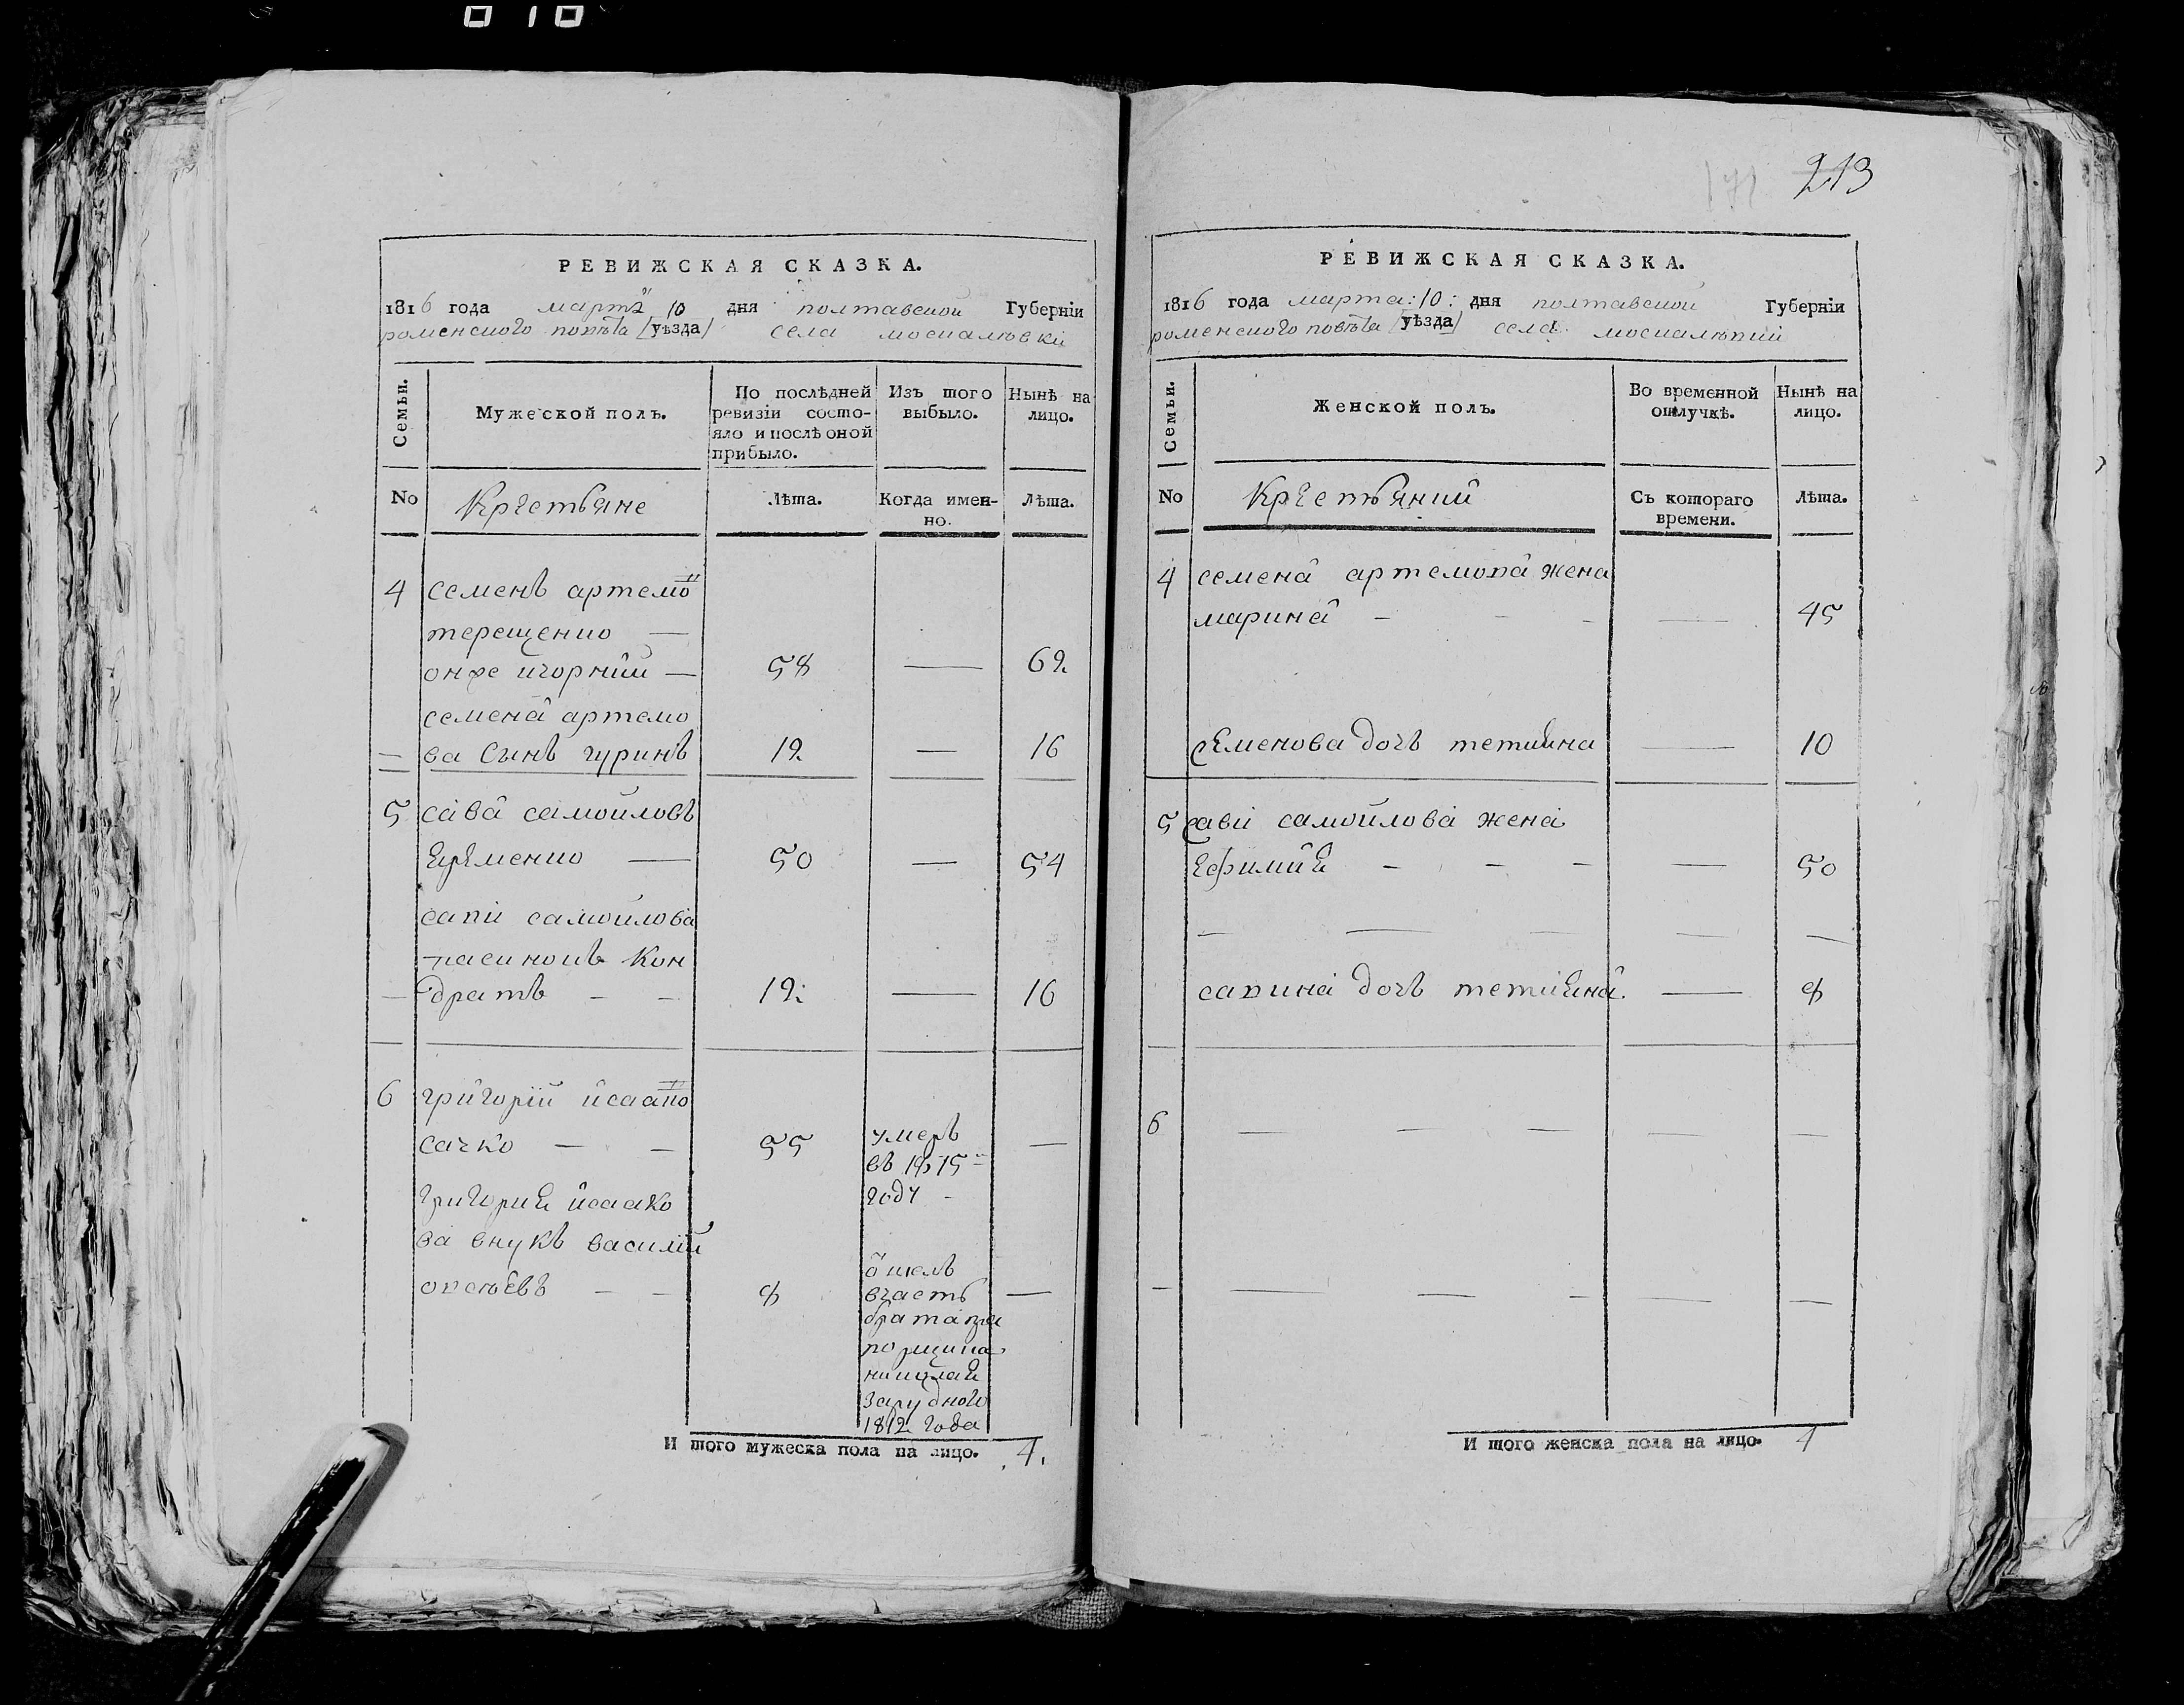 213
РЕВИЖСКАЯ СКАЗКА.
1816 года марта 10 дня полтавской Губернiи
роменского повѣта [уѣзда] села москалювки
Семьи.
Мужеской полъ.
По послѣдней ревизiи состо-
яло и послѣ оной прибыло.
Изъ того выбыло.
Нынѣ на лицо.
No
Крестьяне
Лѣта.
Когда имен-
но.
Лѣта.
4 семенъ артемо
терещенко —
онже згорнiй — 58 — 62
семена артемо
ва сынъ гуринъ 12 — 16
5 сава самойловъ
Еременко — 50 — 54
сави самойлова
пасинокъ Кон
дратъ - - 12: — 16
6 григорiй исако
сачко — — 55 умеръ —
въ 1815
году -
григорiя исаако
ва внукъ василiй
евъ — — 8 —
ошелъ
вчасть
брата
николая
зарудного
1812 года
И того мужеска пола на лицо. 4.
РЕВИЖСКАЯ СКАЗКА.
1816 года марта: 10: дня полтавской Губернiи
роменского повѣта [уѣзда] села москалювки
Семьи.
Женской полъ.
Во временной отлучкѣ.
Нынѣ на лицо.
No
Крестьянки
Съ котораго времени.
Лѣта.
4 семена артемова жена
марина - - - — 45
семенова дочъ тетияна — 10
5 сави самойлова жена
Ефимия - - - — 50
— — — — —
савина дочъ тетияна. — 8
6 — — — — —
— — — — — —
И того женска пола на лицо. 4